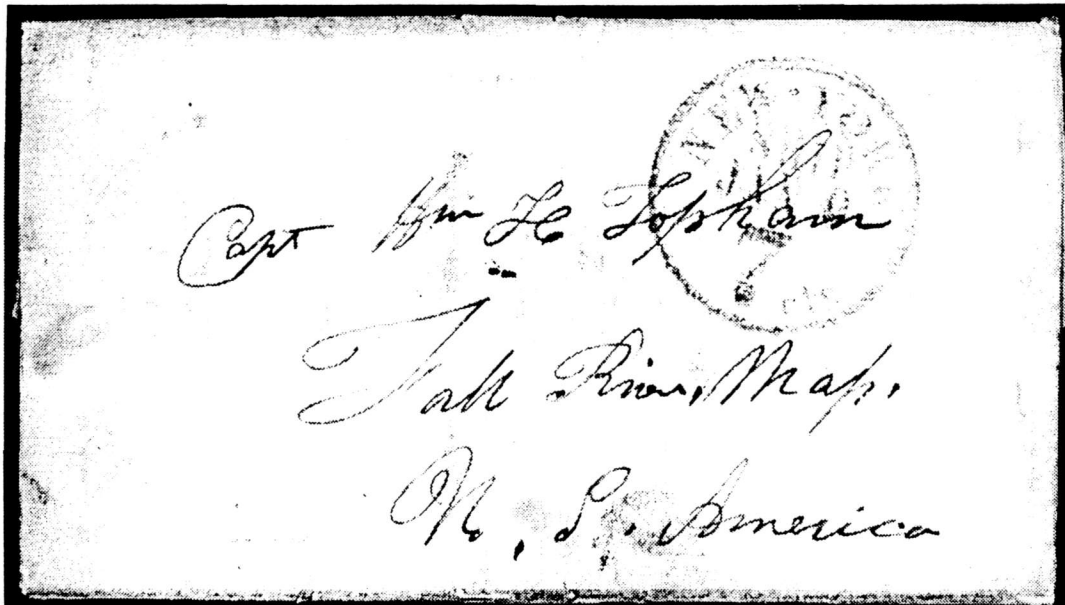 NEW-YORK
7
cts
Capt Wm H Topham
Fall River, Mass.
U. S. America